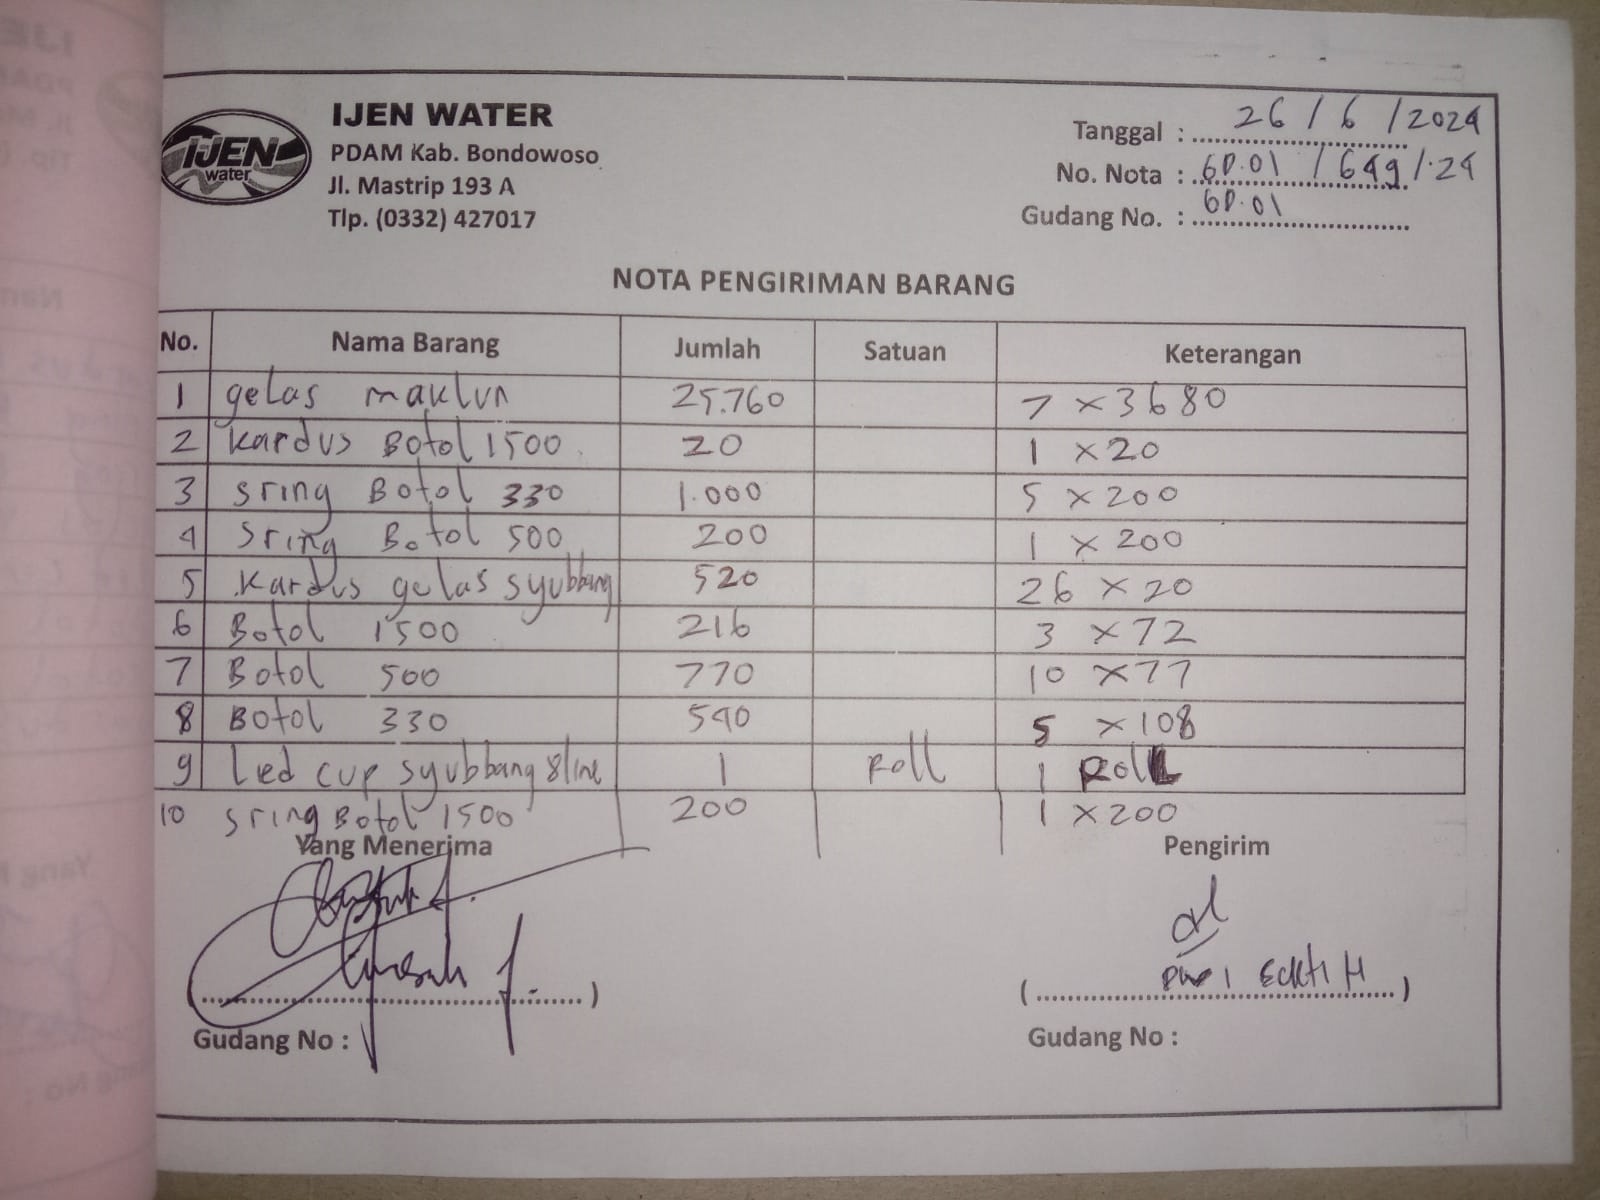 IJEN WATER
PDAM Kab. Bondowoso
Jl. Mastrip 193 A
Tlp. (0332) 427017
IJEN
water
Tanggal : 26 / 6 / 2024
No. Nota : 6D.01 / 649 / .24
Gudang No. : 6D.01
NOTA PENGIRIMAN BARANG
No. Nama Barang Jumlah Satuan Keterangan
1 gelas maklun 25.760 7 x 3680
2 kardus Botol 1500 20 1 x 20
3 sring Botol 330 1.000 5 x 200
4 Sring Botol 500 200 1 x 200
5 Kardus gelas syubbang 520 26 x 20
6 Botol 1500 216 3 x 72
7 Botol 500 770 10 x 77
8 Botol 330 540 5 x 108
9 Lied cup syubbang 8line 1 Roll 1 ROLL
10 sring Botol 1500 200 1 x 200
Yang Menerima Pengirim
( ) ( Eckti H )
Gudang No : Gudang No :